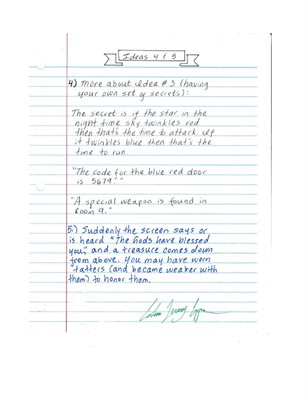 Ideas 4 & 5
4) More about Idea #3 (having
your own set of secrets):
The secret is if the star in the
night time sky twinkles red
then that's the time to attack. If
it twinkles blue then that's the
time to run.
"The code for the blue red door
is 5679."
"A special weapon is found in
Room 9."
5.) Suddenly the screen says or
is heard "The Gods have blessed
you," and a treasure comes down
from above. You may have worn
"tatters (and became weaker with
them) to honor them.